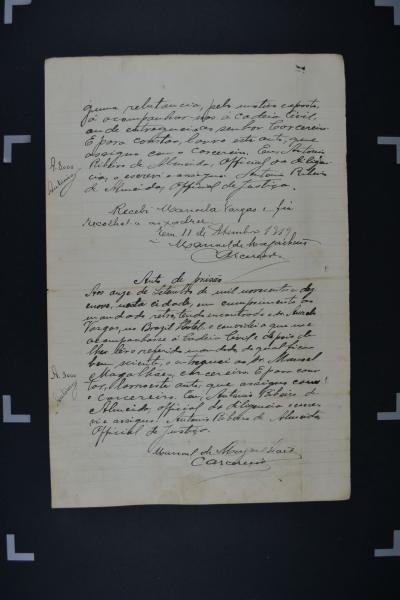 guma relutancia, pelo motivo exposto,
já acompanhar-nos á Cadeia Civil,
onde entreguei-a ao senhor Carcereiro.
E para constar, lavro este auto, que
assigno com o Carcereiro. Eu, Antonio
Ribeiro de Almeida, Official da diligen
cia, o escrevi e assigno. Antonio Ribeiro
de Almeida, Official de Justiça.
Recebi Manoela Vargas e fiz
recolhel-a ao xadrez.
Em 11 de Setembro 1919
Manoel de Magalhães
Carcereiro
Auto de prisão
Aos onze de Setembro de mil novecentos e dez
enove, nesta cidade, em cumprimento ao
mandado retro, tendo encontrado a
Vargas, no Brazil Hotel, e convidei-a que me
acompanhasse á Cadeia Civil, depois de
lhe ler o referido mandado, de qual ficou
bem sciente, e entreguei ao Sr. Manoel
Magalhães, carcereiro. E para cons
tar, lavro este auto, que assigno com
o carcereiro. Eu, Antonio Ribeiro de
Almeida, official da diligencia o escre
vi e assigno. Antonio Ribeiro de Almeida
Official de Justiça.
Manoel de Magalhães
Carcereiro